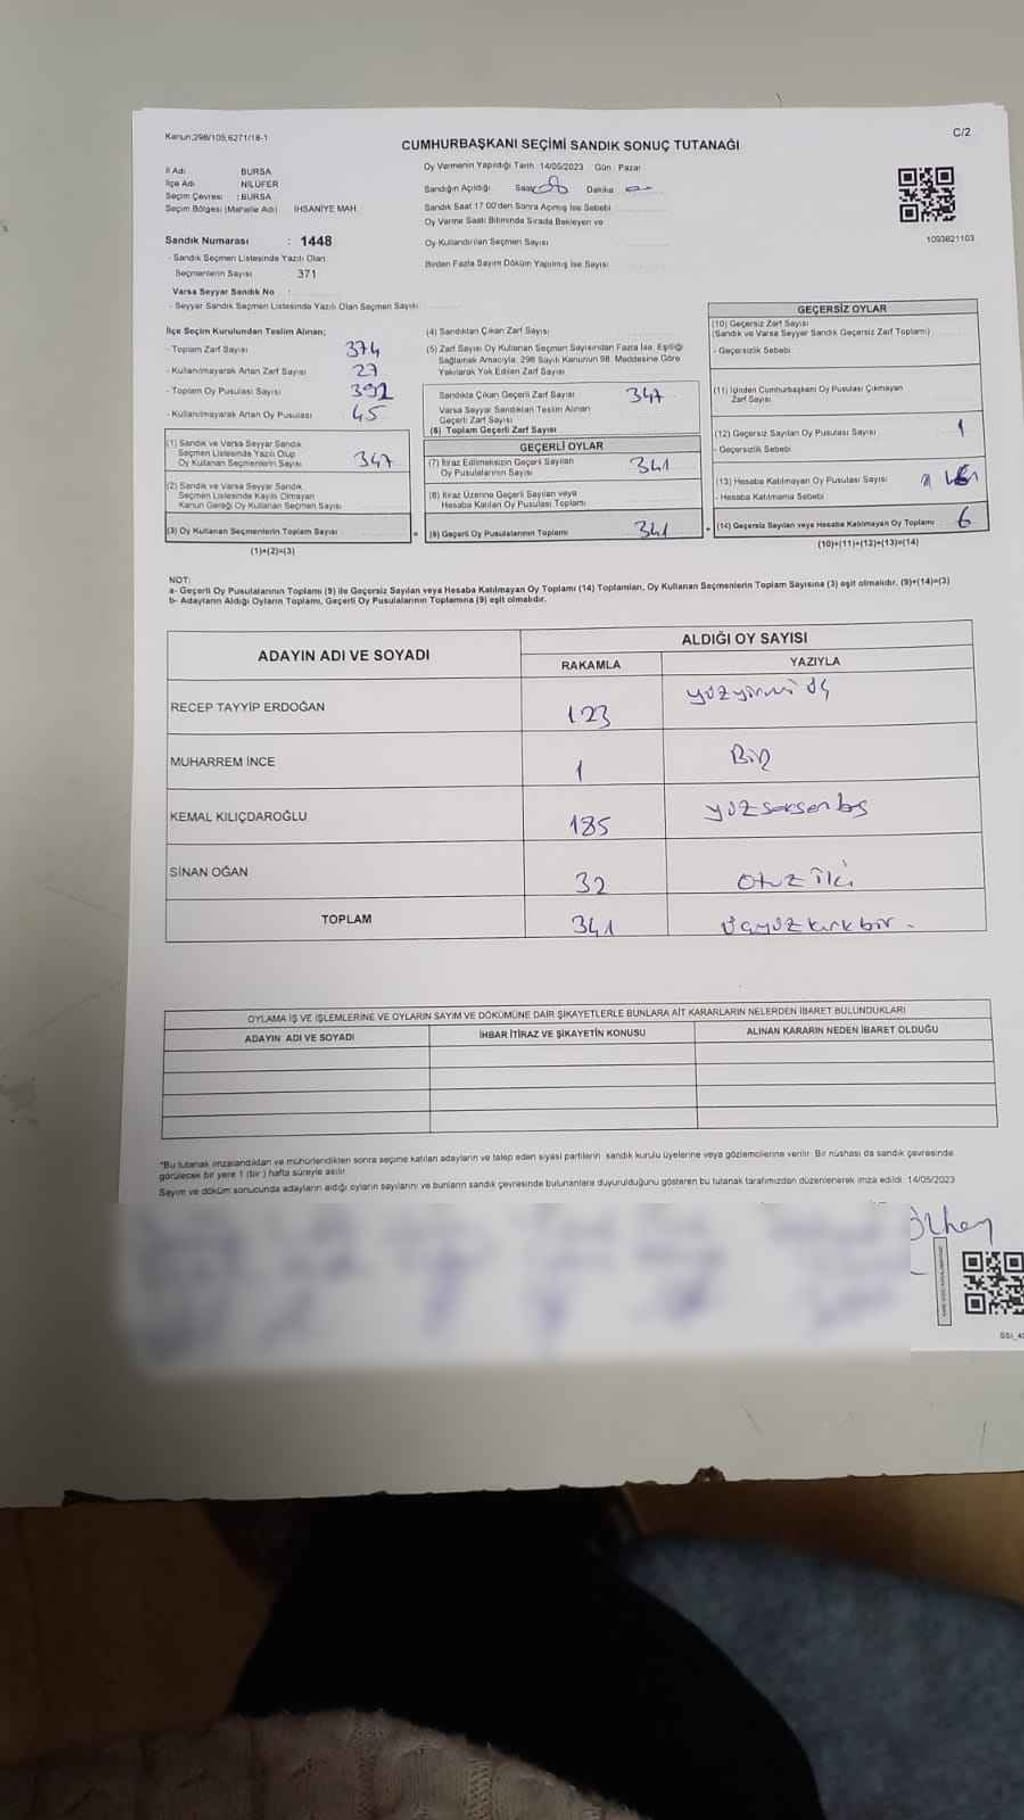 Kanun:298/105,6271/18-1
C/2
CUMHURBAŞKANI SEÇİMİ SANDIK SONUÇ TUTANAĞI
İl Adı BURSA
İlçe Adı NİLÜFER
Seçim Çevresi : BURSA
Seçim Bölgesi (Mahalle Adı) İHSANİYE MAH.
Sandık Numarası : 1448
- Sandık Seçmen Listesinde Yazılı Olan
Seçmenlerin Sayısı 371
Varsa Seyyar Sandık No
- Seyyar Sandık Seçmen Listesinde Yazılı Olan Seçmen Sayısı
Oy Vermenin Yapıldığı Tarih 14/05/2023 Gün : Pazar
Sandığın Açıldığı Saat 08 Dakika
Sandık Saat 17.00'den Sonra Açılmış İse Sebebi
Oy Verme Saati Bitiminde Sırada Bekleyen ve
Oy Kullandırılan Seçmen Sayısı
Birden Fazla Sayım Döküm Yapılmış İse Sayısı
1093821103
İlçe Seçim Kurulundan Teslim Alınan;
- Toplam Zarf Sayısı 374
- Kullanılmayarak Artan Zarf Sayısı 27
- Toplam Oy Pusulası Sayısı 392
- Kullanılmayarak Artan Oy Pusulası 45
(1) Sandık ve Varsa Seyyar Sandık
Seçmen Listesinde Yazılı Olup
Oy Kullanan Seçmenlerin Sayısı 347
(2) Sandık ve Varsa Seyyar Sandık
Seçmen Listesinde Kayıtlı Olmayan
Kanun Gereği Oy Kullanan Seçmen Sayısı
(3) Oy Kullanan Seçmenlerin Toplam Sayısı
(1)+(2)=(3)
(4) Sandıktan Çıkan Zarf Sayısı
(5) Zarf Sayısı Oy Kullanan Seçmen Sayısından Fazla İse, Eşitliği
Sağlamak Amacıyla 298 Sayılı Kanunun 98. Maddesine Göre
Yakılarak Yok Edilen Zarf Sayısı
Sandıkta Çıkan Geçerli Zarf Sayısı 347
Varsa Seyyar Sandıktan Teslim Alınan
Geçerli Zarf Sayısı
(6) Toplam Geçerli Zarf Sayısı
GEÇERLİ OYLAR
(7) İtiraz Edilmeksizin Geçerli Sayılan
Oy Pusulalarının Sayısı 341
(8) İtiraz Üzerine Geçerli Sayılan veya
Hesaba Katılan Oy Pusulası Toplamı
(9) Geçerli Oy Pusulalarının Toplamı 341
GEÇERSİZ OYLAR
(10) Geçersiz Zarf Sayısı
(Sandık ve Varsa Seyyar Sandık Geçersiz Zarf Toplamı)
- Geçersizlik Sebebi
(11) İçinden Cumhurbaşkanı Oy Pusulası Çıkmayan
Zarf Sayısı
(12) Geçersiz Sayılan Oy Pusulası Sayısı 1
- Geçersizlik Sebebi
(13) Hesaba Katılmayan Oy Pusulası Sayısı
- Hesaba Katılmama Sebebi
(14) Geçersiz Sayılan veya Hesaba Katılmayan Oy Toplamı 6
(10)+(11)+(12)+(13)=(14)
NOT:
a- Geçerli Oy Pusulalarının Toplamı (9) ile Geçersiz Sayılan veya Hesaba Katılmayan Oy Toplamı (14) Toplamları, Oy Kullanan Seçmenlerin Toplam Sayısına (3) eşit olmalıdır. (9)+(14)=(3)
b- Adayların Aldığı Oyların Toplamı, Geçerli Oy Pusulalarının Toplamına (9) eşit olmalıdır.
ADAYIN ADI VE SOYADI ALDIĞI OY SAYISI
RAKAMLA YAZIYLA
RECEP TAYYİP ERDOĞAN 123 yüzyirmi üç
MUHARREM İNCE 1 Bir
KEMAL KILIÇDAROĞLU 185 yüzseksenbeş
SİNAN OĞAN 32 otuz iki
TOPLAM 341 üçyüzkırkbir.
OYLAMA İŞ VE İŞLEMLERİNE VE OYLARIN SAYIM VE DÖKÜMÜNE DAİR ŞİKAYETLERLE BUNLARA AİT KARARLARIN NELERDEN İBARET BULUNDUKLARI
ADAYIN ADI VE SOYADI İHBAR İTİRAZ VE ŞİKAYETİN KONUSU ALINAN KARARIN NEDEN İBARET OLDUĞU
*Bu tutanak imzalandıktan ve mühürlendikten sonra seçime katılan adayların ve talep eden siyasi partilerin sandık kurulu üyelerine veya gözlemcilerine verilir. Bir nüshası da sandık çevresinde
görülecek bir yere 1 (bir) hafta süreyle asılır.
Sayım ve döküm sonucunda adayların aldığı oyların sayılarını ve bunların sandık çevresinde bulunanlara duyurulduğunu gösteren bu tutanak tarafımızdan düzenlenerek imza edildi. 14/05/2023